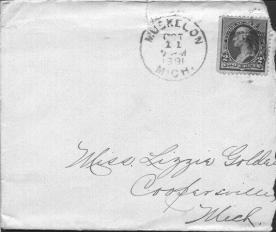 MUSKEGON
OCT
11
1891
MICH.
Miss. Lizzie
Coopersville
Mich.